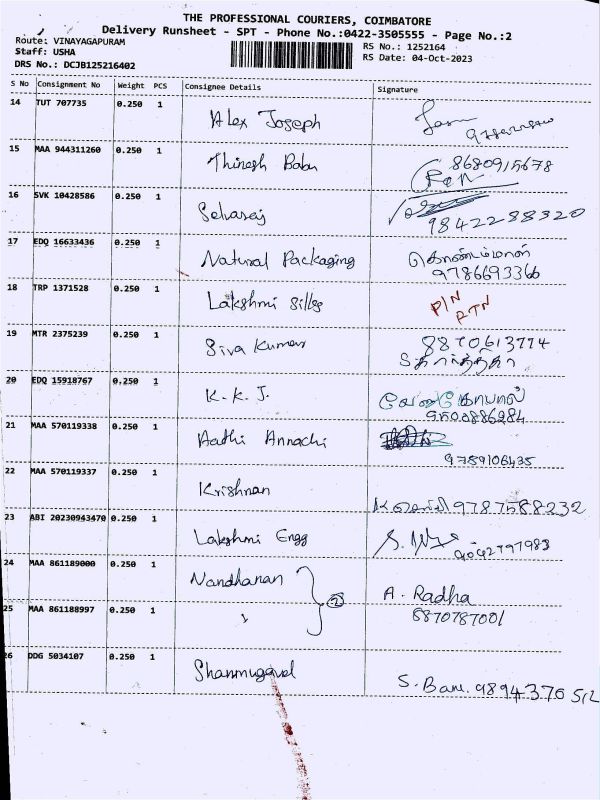 THE PROFESSIONAL COURIERS, COIMBATORE
Delivery Runsheet - SPT - Phone No.:0422-3505555 - Page No.:2
Route: VINAYAGAPURAM
Staff: USHA
RS No.: 1252164
DRS No.: DCJB125216402
RS Date: 04-Oct-2023
S No Consignment No Weight PCS Consignee Details Signature
14 TUT 707735 0.250 1 Alex Joseph
15 MAA 944311260 0.250 1 Thinesh Babu 8680915678
16 SVK 10428586 0.250 1 Selvaraj 9842288320
17 EDQ 16633436 0.250 1 Natural Packaging
9786693366
18 TRP 1371528 0.250 1 Lakshmi Silks P/N
RTN
19 MTR 2375239 0.250 1 Siva Kumar 8870613774
20 EDQ 15918767 0.250 1 K.K.J. வேணுகோபால்
9500886284
21 MAA 570119338 0.250 1 Aathi Annachi
9789106435
22 MAA 570119337 0.250 1 Krishnan 9787588232
23 ABI 20230943470 0.250 1 Lakshmi Engg
24 MAA 861189000 0.250 1 Nandhanan A. Radha
25 MAA 861188997 0.250 1 2 8870787001
26 DDG 5034107 0.250 1 Shanmugavel S. Banu. 9894376512